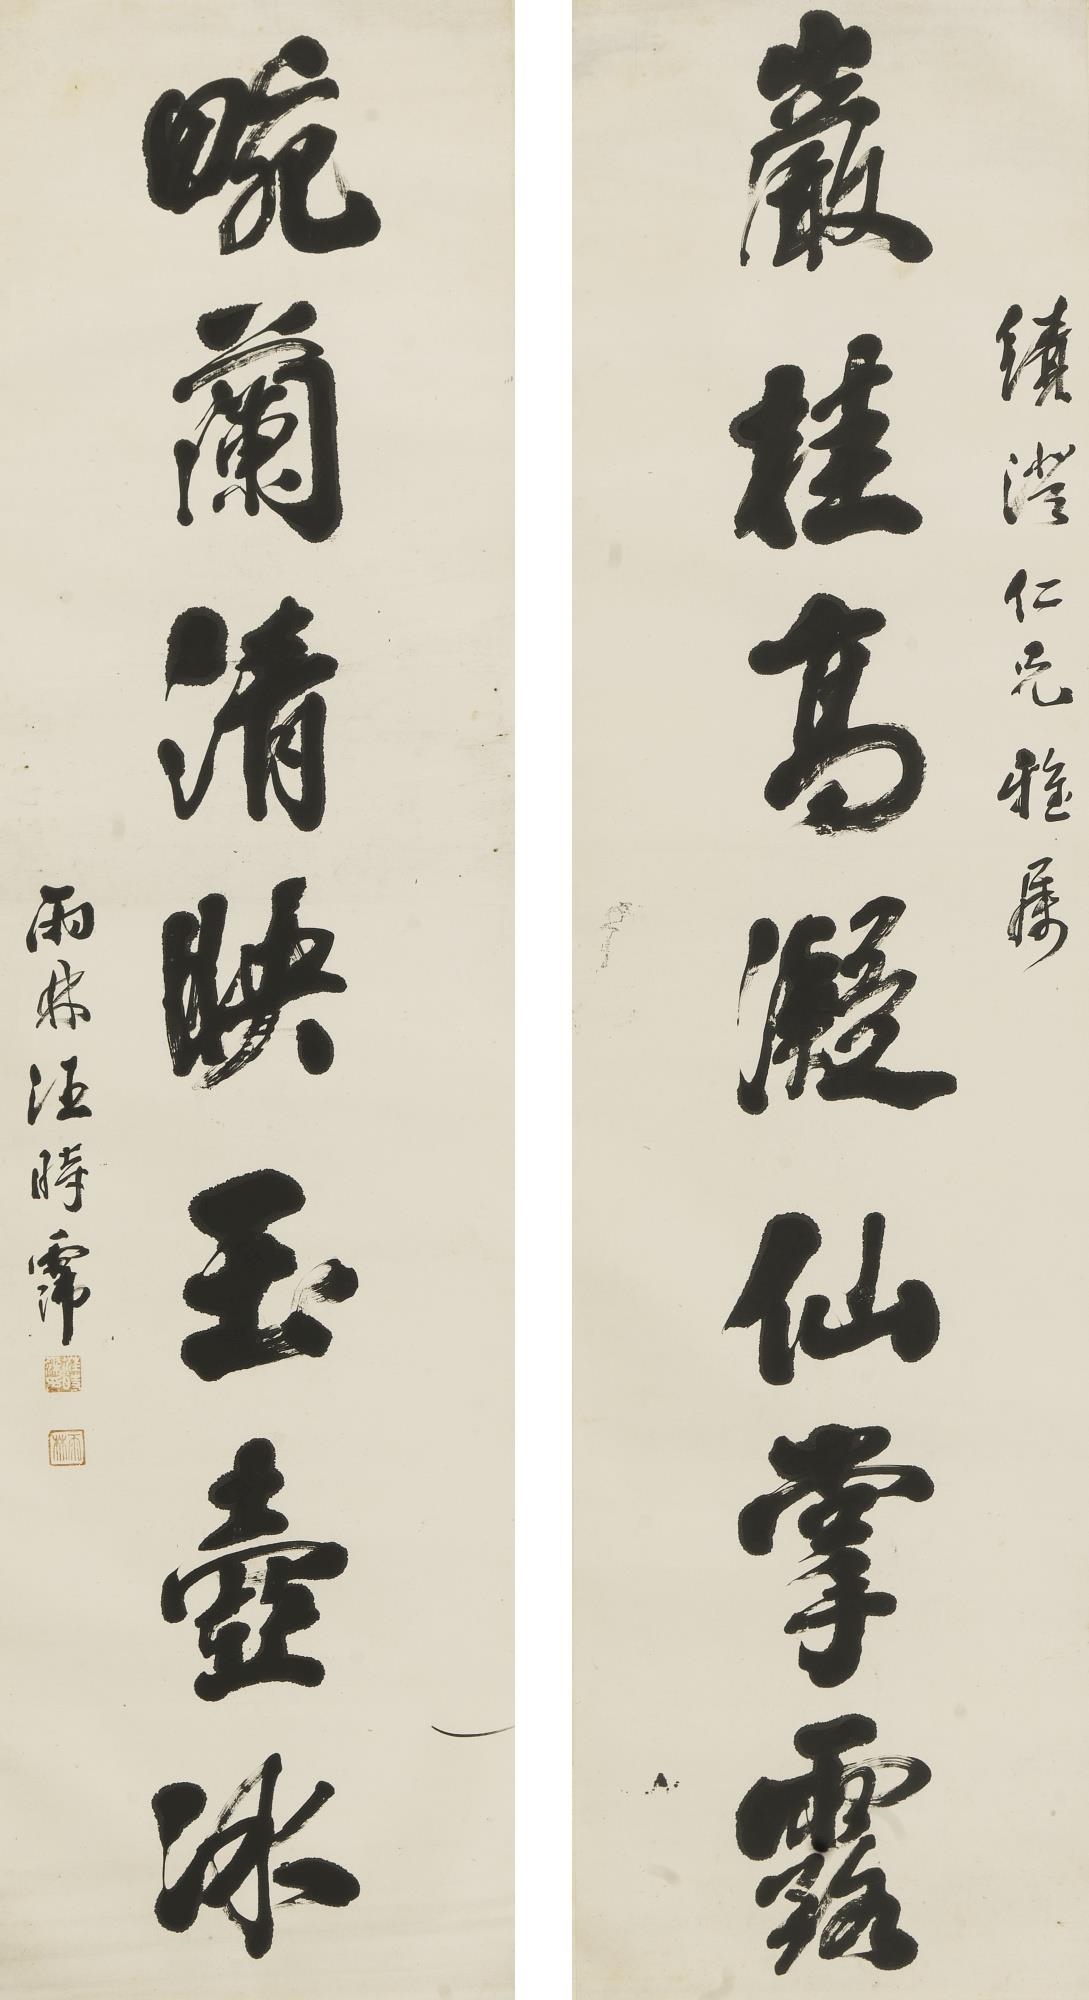 續澄仁兄雅屬
巖桂高凝仙掌露
畹蘭清映玉壺冰
雨林汪時霈